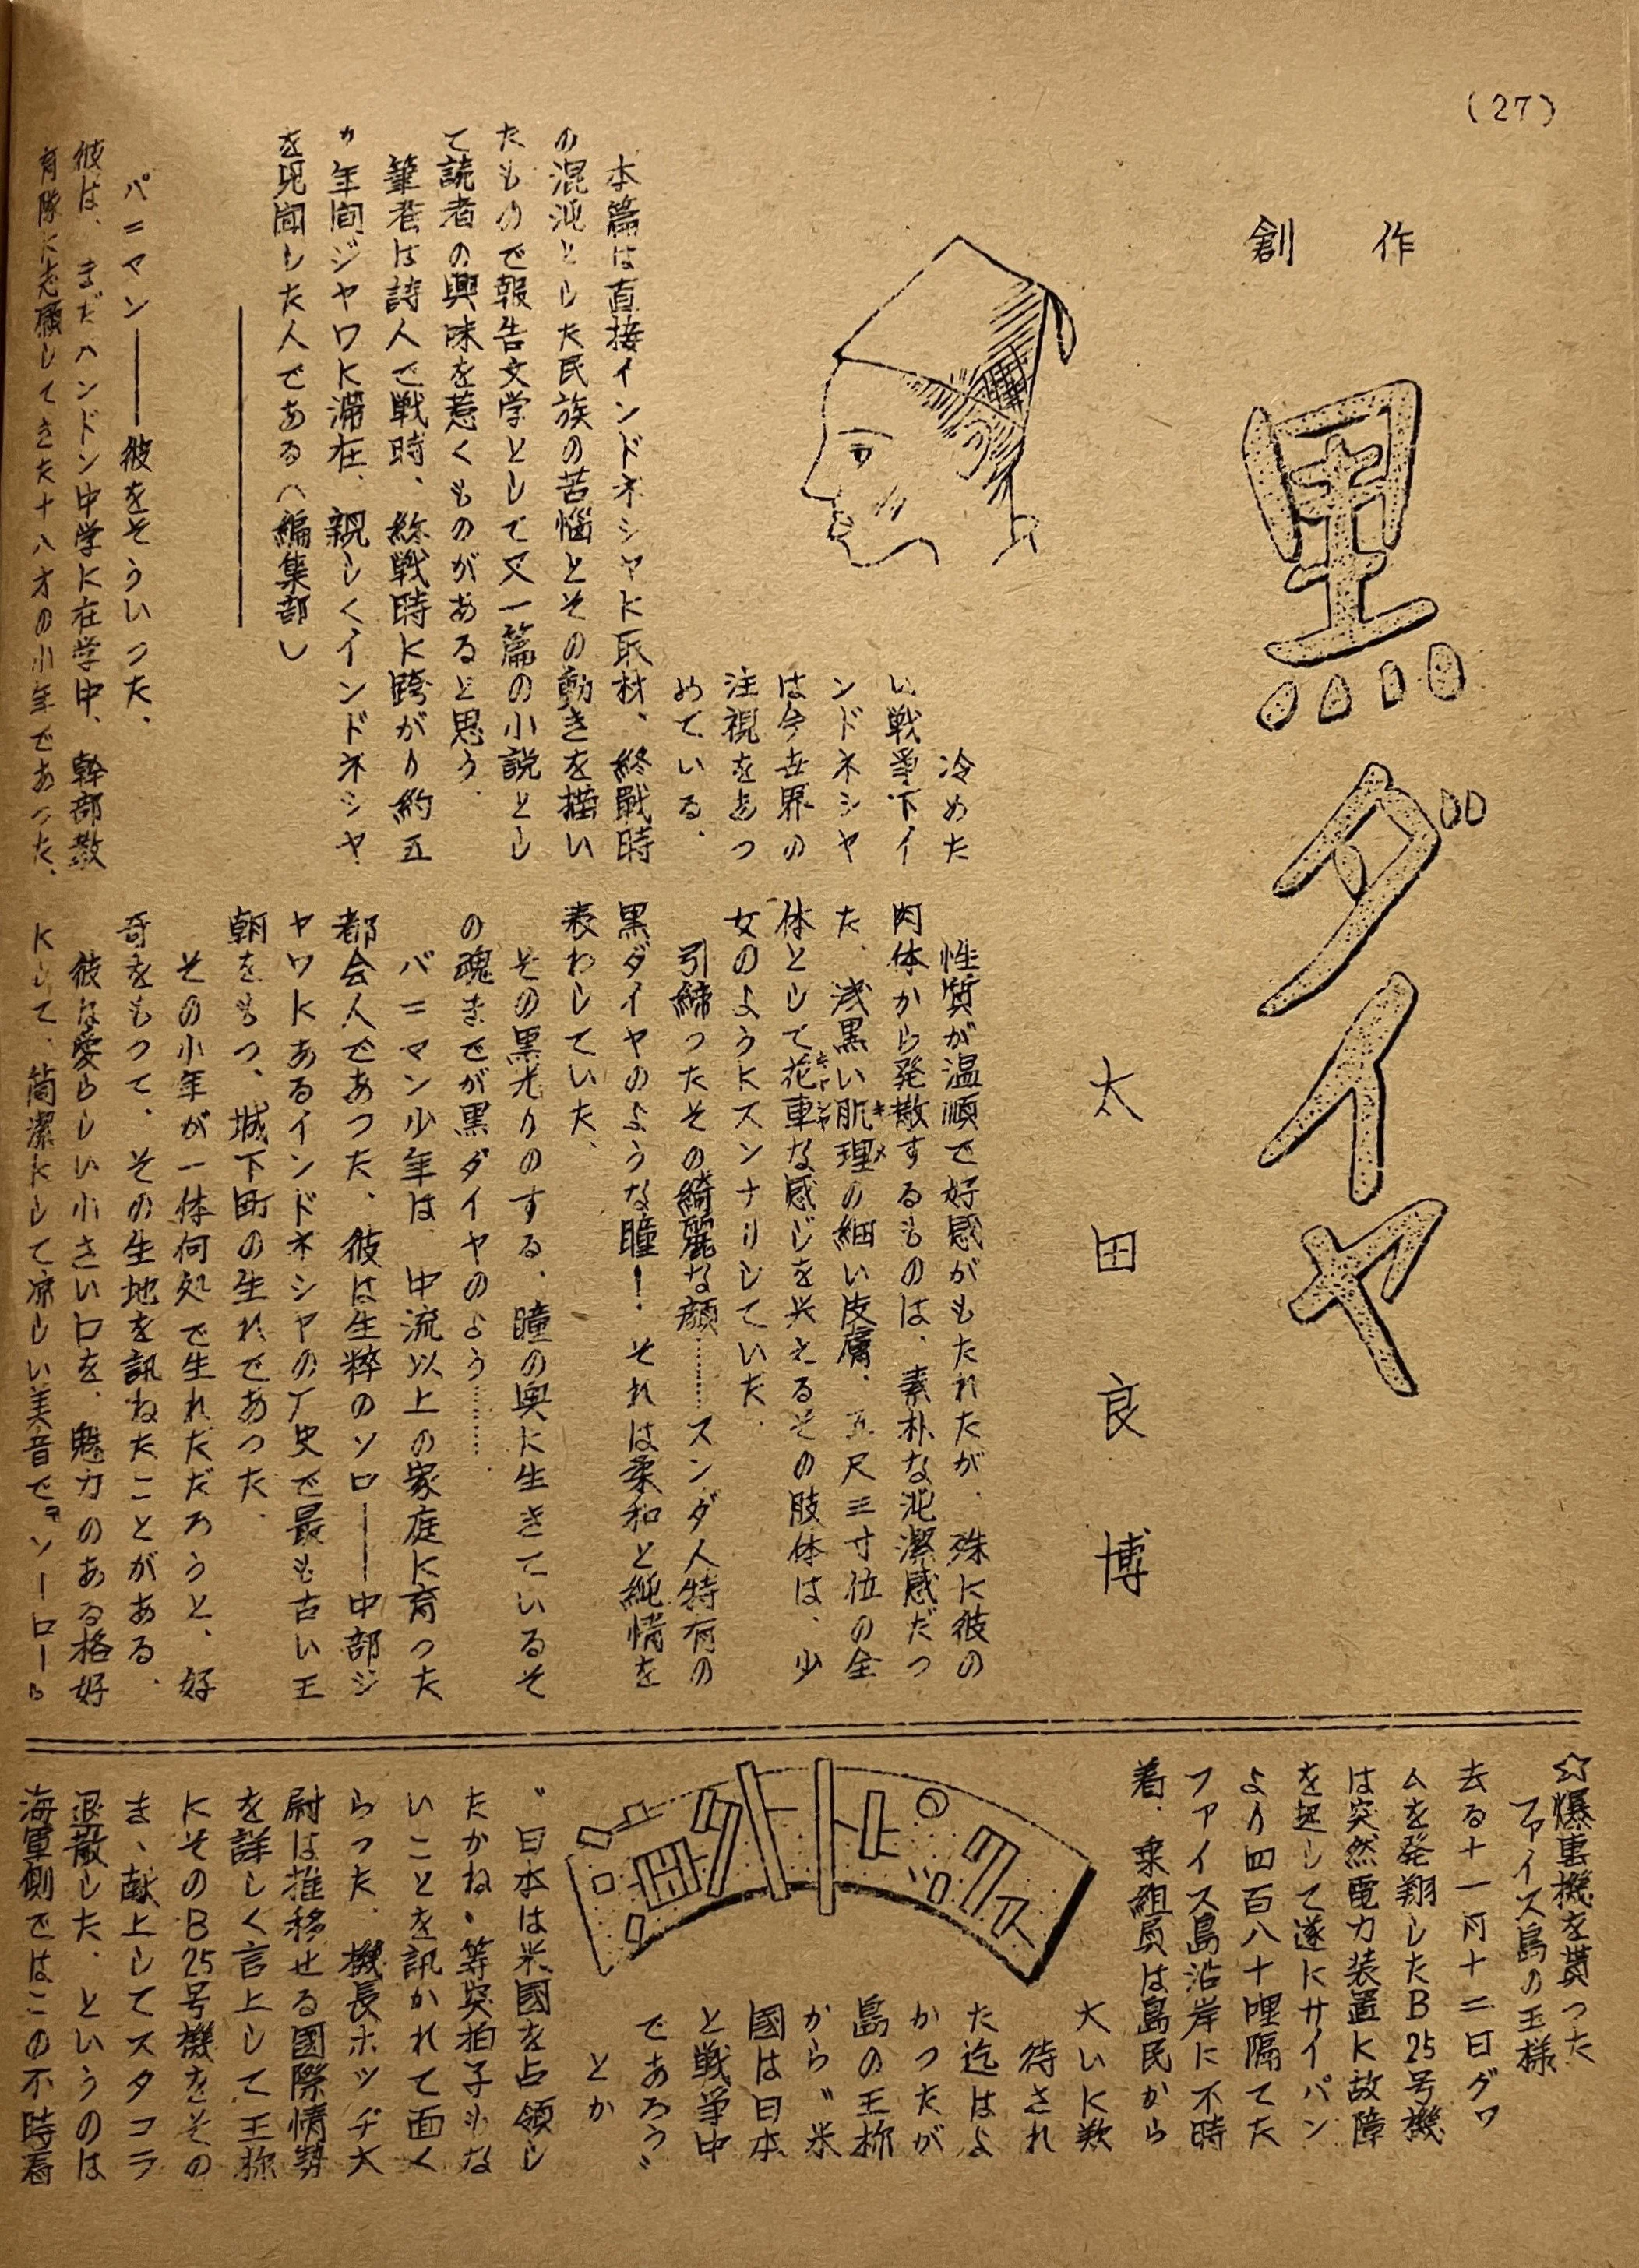 (27)
創作
黒ダイヤ
太田良博
冷めた
い戦争下イ
ンドネシヤ
は今世界の
注視をあつ
めている、
本篇は直接インドネシヤに取材、終戦時
の混沌とした民族の苦悩とその動きを描い
たもので報告文学として又一篇の小説とし
て読者の興味を惹くものがあると思う.
筆者は詩人で戦時、終戦時に跨がり約五
カ年間ジヤワに滞在、親しくインドネシヤ
を見聞した人である(編集部)
パニマン――彼をそういつた、
彼は、まだハンドン中学に在学中、幹部教
育隊に志願してきた十八才の少年であつた、
性質が温順で好感がもたれたが、殊に彼の
肉体から発散するものは、素朴な純潔感だつ
た、浅黒い肌理の細い皮膚、五尺三寸位の全
キメ
体として花車な感じを与えるその肢体は、少
キャシヤ
女のようにスンナリしていた.
引締つたその綺麗な顔……スンダ人特有の
黒ダイヤのような瞳!それは柔和と純情を
表わしていた、
その黒光りのする、瞳の奥に生きているそ
の魂までが黒ダイヤのよう……
パニマン少年は、中流以上の家庭に育つた
都会人であつた、彼は生粋のソロ――中部ジ
ヤワにあるインドネシヤの厂史で最も古い王
朝をもつ、城下町の生れであつた.
その少年が一体何処で生れただろうと、好
奇をもつて、その生地を訊ねたことがある.
彼は愛らしい小さい口を、魅力のある格好
にして、簡潔にして涼しい美音で『ソーロー』
☆爆撃機を貰つた
フアイス島の王様
去る十一月十二日グワ
ムを発翔したB25号機
は突然電力装置に故障
を起して遂にサイパン
より四百八十哩隔てた
フアイス島沿岸に不時
着.乗組員は島民から
大いに歓
待され
た迄はよ
かつたが
島の王様
から〝米
國は日本
と戦争中
であろう〟
とか
〝日本は米國を占領し
たかね〟等突拍子もな
いことを訊かれて面く
らつた.機長ホツヂ大
尉は推移せる國際情勢
を詳しく言上して王様
にそのB25号機をその
まゝ献上してスタコラ
退散した.というのは
海軍側ではこの不時着